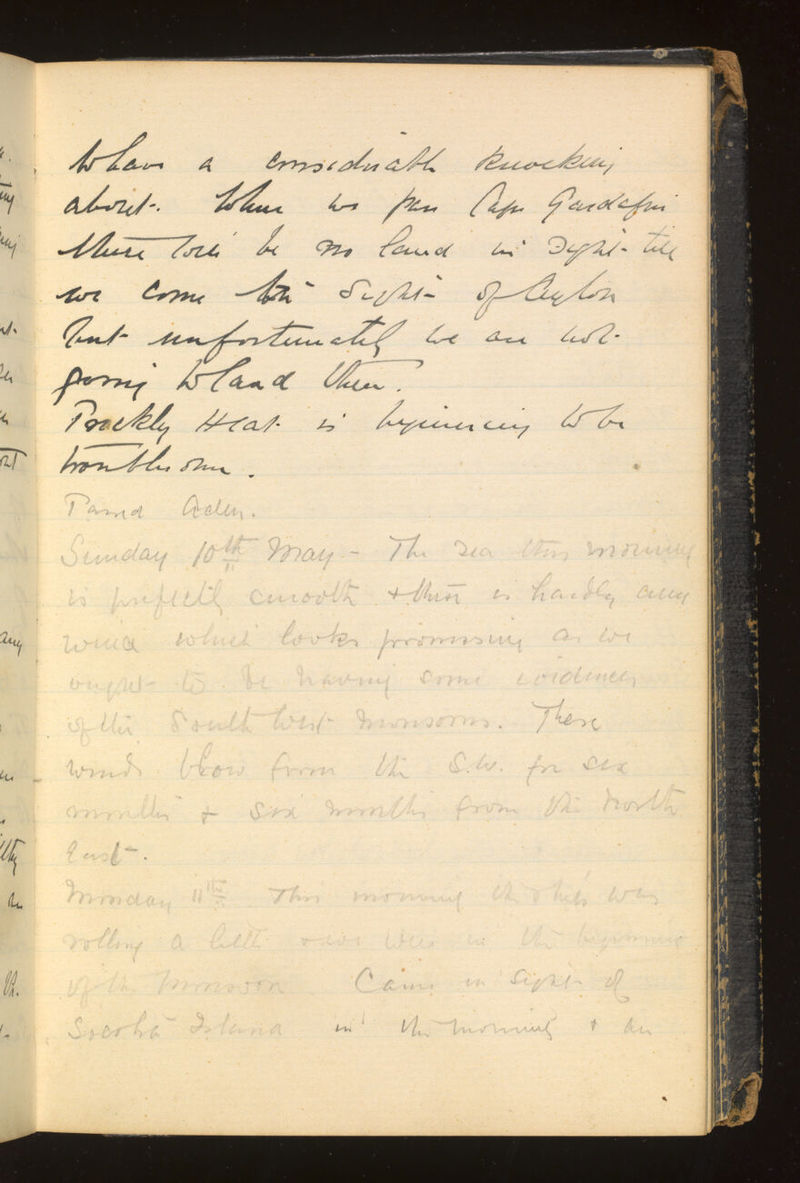 to have a considerable knocking
about. When we pass Cape Gardafui
there will be no land in sight till
we come in sight of Ceylon
but unfortunately we are not
going to land there.
Prickly Heat is beginning to be
troublesome.
Passed Aden.
Sunday 10th May - The sea this morning
is perfectly smooth & there is hardly any
wind which looks promising as we
ought to be having some evidences
of the South West Monsoons. These
winds blow from the S.W. for six
months & six months from the North
East.
Monday 11th This morning the ship was
rolling a little & we were in the beginning
of the Monsoon Came in sight of
Socotra Island in the morning & are